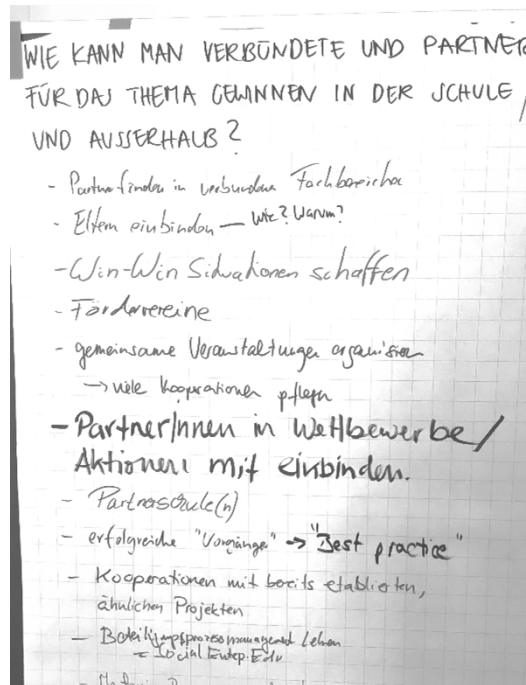 WIE KANN MAN VERBÜNDETE UND PARTNER
FÜR DAS THEMA GEWINNEN IN DER SCHULE /
UND AUSSERHALB?
- Partner finden in verbundene Fachbereiche
- Eltern einbinden — Wie? Warum?
- Win-Win Situationen schaffen
- Fördervereine
- gemeinsame Veranstaltungen organisieren
→ viele Kooperationen pflegen
- Partner/Innen in Wettbewerbe/
Aktionen mit einbinden.
- Partnerschule(n)
- erfolgreiche "Vorgänger" → "Best practice"
- Kooperationen mit bereits etablierten,
ähnlichen Projekten
- Beteiligungsprozessmanagement Lehren
= Social Entep. Edu